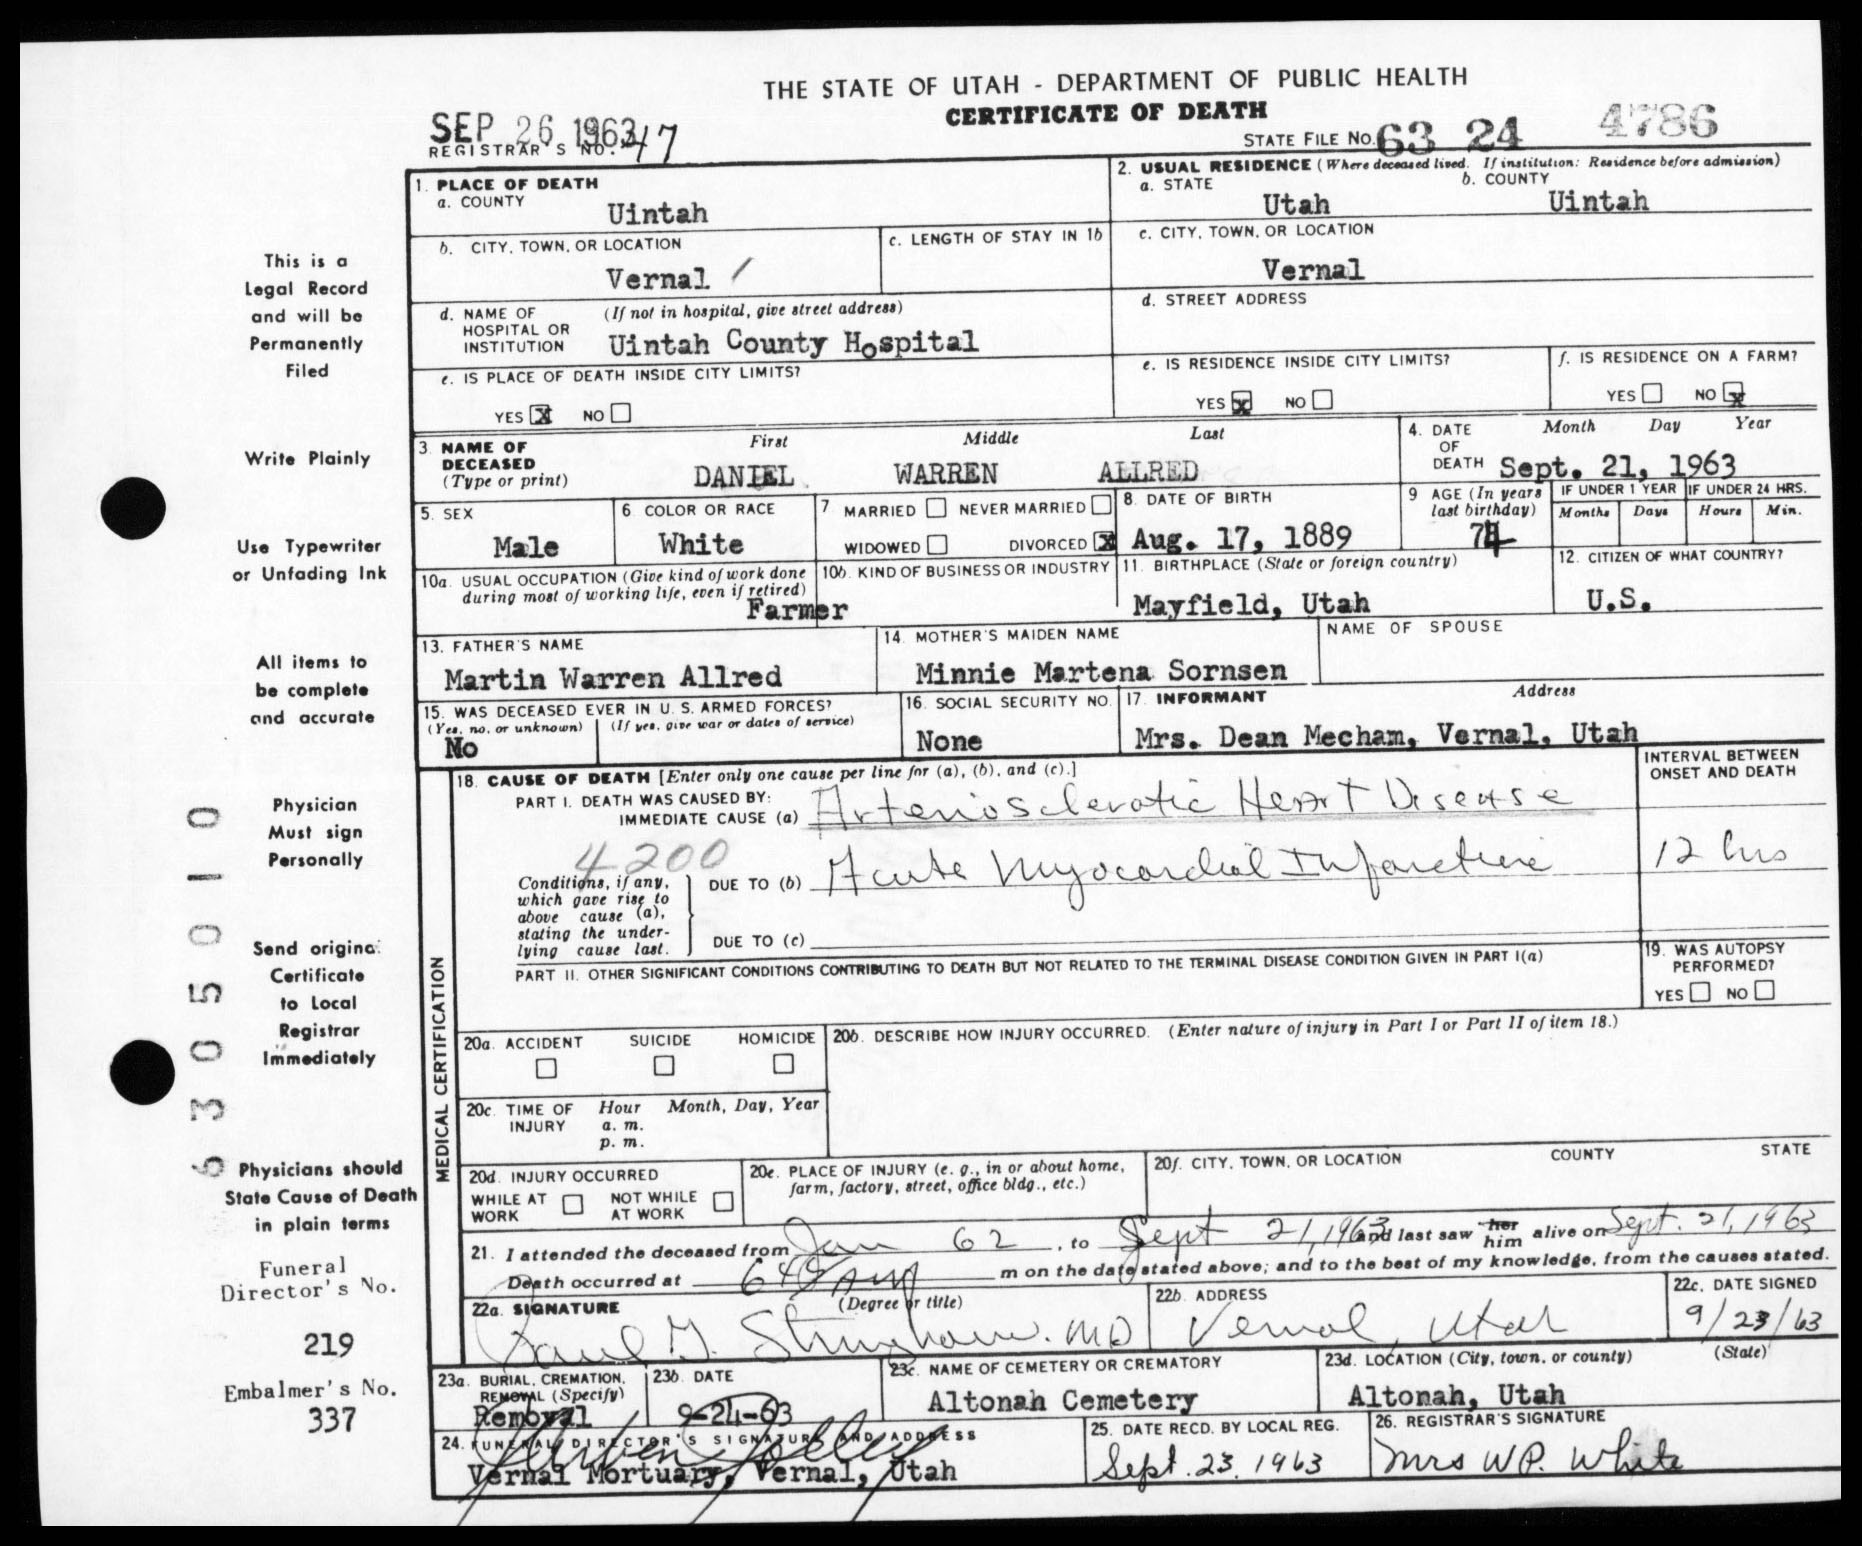 THE STATE OF UTAH - DEPARTMENT OF PUBLIC HEALTH
CERTIFICATE OF DEATH
SEP 26 1963
REGISTRAR'S NO. 47
STATE FILE NO. 63 24 4786
1. PLACE OF DEATH
a. COUNTY
Uintah
2. USUAL RESIDENCE (Where deceased lived. If institution: Residence before admission)
a. STATE
Utah
b. COUNTY
Uintah
b. CITY, TOWN, OR LOCATION
Vernal
c. LENGTH OF STAY IN 1b
c. CITY, TOWN, OR LOCATION
Vernal
d. NAME OF HOSPITAL OR INSTITUTION
(If not in hospital, give street address)
Uintah County Hospital
d. STREET ADDRESS
e. IS PLACE OF DEATH INSIDE CITY LIMITS?
YES X NO
e. IS RESIDENCE INSIDE CITY LIMITS?
YES X NO
f. IS RESIDENCE ON A FARM?
YES NO X
3. NAME OF DECEASED
(Type or print)
First Middle Last
DANIEL WARREN ALLRED
4. DATE OF DEATH
Month Day Year
Sept. 21, 1963
5. SEX
Male
6. COLOR OR RACE
White
7 MARRIED NEVER MARRIED
WIDOWED DIVORCED X
8. DATE OF BIRTH
Aug. 17, 1889
9 AGE (In years last birthday)
74
IF UNDER 1 YEAR
Months Days
IF UNDER 24 HRS.
Hours Min.
10a. USUAL OCCUPATION (Give kind of work done during most of working life, even if retired)
Farmer
10b. KIND OF BUSINESS OR INDUSTRY
11. BIRTHPLACE (State or foreign country)
Mayfield, Utah
12. CITIZEN OF WHAT COUNTRY?
U.S.
13. FATHER'S NAME
Martin Warren Allred
14. MOTHER'S MAIDEN NAME
Minnie Martena Sornsen
NAME OF SPOUSE
15. WAS DECEASED EVER IN U. S. ARMED FORCES?
(Yes, no, or unknown) (If yes, give war or dates of service)
No
16. SOCIAL SECURITY NO.
None
17. INFORMANT Address
Mrs. Dean Mecham, Vernal, Utah
MEDICAL CERTIFICATION
18. CAUSE OF DEATH [Enter only one cause per line for (a), (b), and (c).]
INTERVAL BETWEEN ONSET AND DEATH
PART I. DEATH WAS CAUSED BY:
IMMEDIATE CAUSE (a) Arteriosclerotic Heart Disease
4200
Conditions, if any, which gave rise to above cause (a), stating the underlying cause last.
DUE TO (b) Acute Myocardial Infarction
12 hrs
DUE TO (c)
PART II. OTHER SIGNIFICANT CONDITIONS CONTRIBUTING TO DEATH BUT NOT RELATED TO THE TERMINAL DISEASE CONDITION GIVEN IN PART I(a)
19. WAS AUTOPSY PERFORMED?
YES NO
20a. ACCIDENT SUICIDE HOMICIDE
20b. DESCRIBE HOW INJURY OCCURRED. (Enter nature of injury in Part I or Part II of item 18.)
20c. TIME OF INJURY
Hour Month, Day, Year
a. m.
p. m.
20d. INJURY OCCURRED
WHILE AT WORK NOT WHILE AT WORK
20e. PLACE OF INJURY (e. g., in or about home, farm, factory, street, office bldg., etc.)
20f. CITY, TOWN, OR LOCATION COUNTY STATE
21. I attended the deceased from Jan 62, to Sept 21, 1963 and last saw her him alive on Sept. 21, 1963
Death occurred at m on the date stated above; and to the best of my knowledge, from the causes stated.
22a. SIGNATURE (Degree or title)
Paul G. Stringham. MD
22b. ADDRESS
Vernal, Utah
22c. DATE SIGNED
9/23/63
23a. BURIAL, CREMATION, REMOVAL (Specify)
Removal
23b. DATE
9-24-63
23c. NAME OF CEMETERY OR CREMATORY
Altonah Cemetery
23d. LOCATION (City, town, or county) (State)
Altonah, Utah
24. FUNERAL DIRECTOR'S SIGNATURE AND ADDRESS
Vernal Mortuary, Vernal, Utah
25. DATE RECD. BY LOCAL REG.
Sept. 23, 1963
26. REGISTRAR'S SIGNATURE
Mrs W P. White
This is a
Legal Record
and will be
Permanently
Filed
Write Plainly
Use Typewriter
or Unfading Ink
All items to
be complete
and accurate
Physician
Must sign
Personally
Send original
Certificate
to Local
Registrar
Immediately
Physicians should
State Cause of Death
in plain terms
Funeral
Director's No.
219
Embalmer's No.
337
6305010